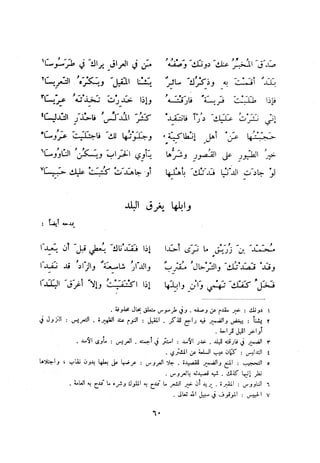 صدق المخبر عنك دونك وصفه من في العراق يراك في طرسوسا١
بلد أقمت به وذكرك سائر يشنا المقيل ويكره التعريسا٢
فإذا طلبت فريسة فارقته وإذا خدرت تخذته عريسا٣
إني نثرت عليك درا فانتقد كثر المدلس فاحذر التدليسا٤
حجبتها عن أهل إنطاكية وجلوتها لك فاجتليت عروسا٥
خير الطيور على القصور وشرها يأوي الخراب ويسكن الناووسا٦
لو جادت الدنيا فدتك بأهلها أو جاهدت كتبت عليك حبيسا٧
وابلها يغرق البلد
يمدحه أيضاً :
محمد بن زريق ما نرى أحدا إذا فقدناك يعطي قبل أن يعدا
وقد قصدتك والترحال مقترب والدار شاسعة والزاد قد نفدا
فخل كفك تهمي واثن وابلها إذا اكتفيت وإلا أغرق البلدا
١ دونك : خبر مقدم عن وصفه . وفي طرسوس متعلق بحال محذوفة .
٢ يشنأ : يبغض والضمير فيه راجع للذكر . المقيل : النوم عند الظهيرة . التعريس : النزول في
أواخر الليل للراحة .
٣ الضمير في فارقته للبلد . خدر الأسد : استتر في أجمته . العريس : مأوى الأسد .
٤ التدليس : كتمان عيب السلعة عن المشتري .
٥ التحجيب : المنع والضمير للقصيدة . جلا العروس : عرضها على بعلها بدون نقاب ، واجتلاها
نظر إليها كذلك . شبه قصيدته بالعروس .
٦ الناووس : المقبرة . يريد أن خير الشعر ما تمدح به الملوك وشره ما تمدح به العامة .
٧ الحبيس : الموقوف في سبيل الله تعالى .
٦٠